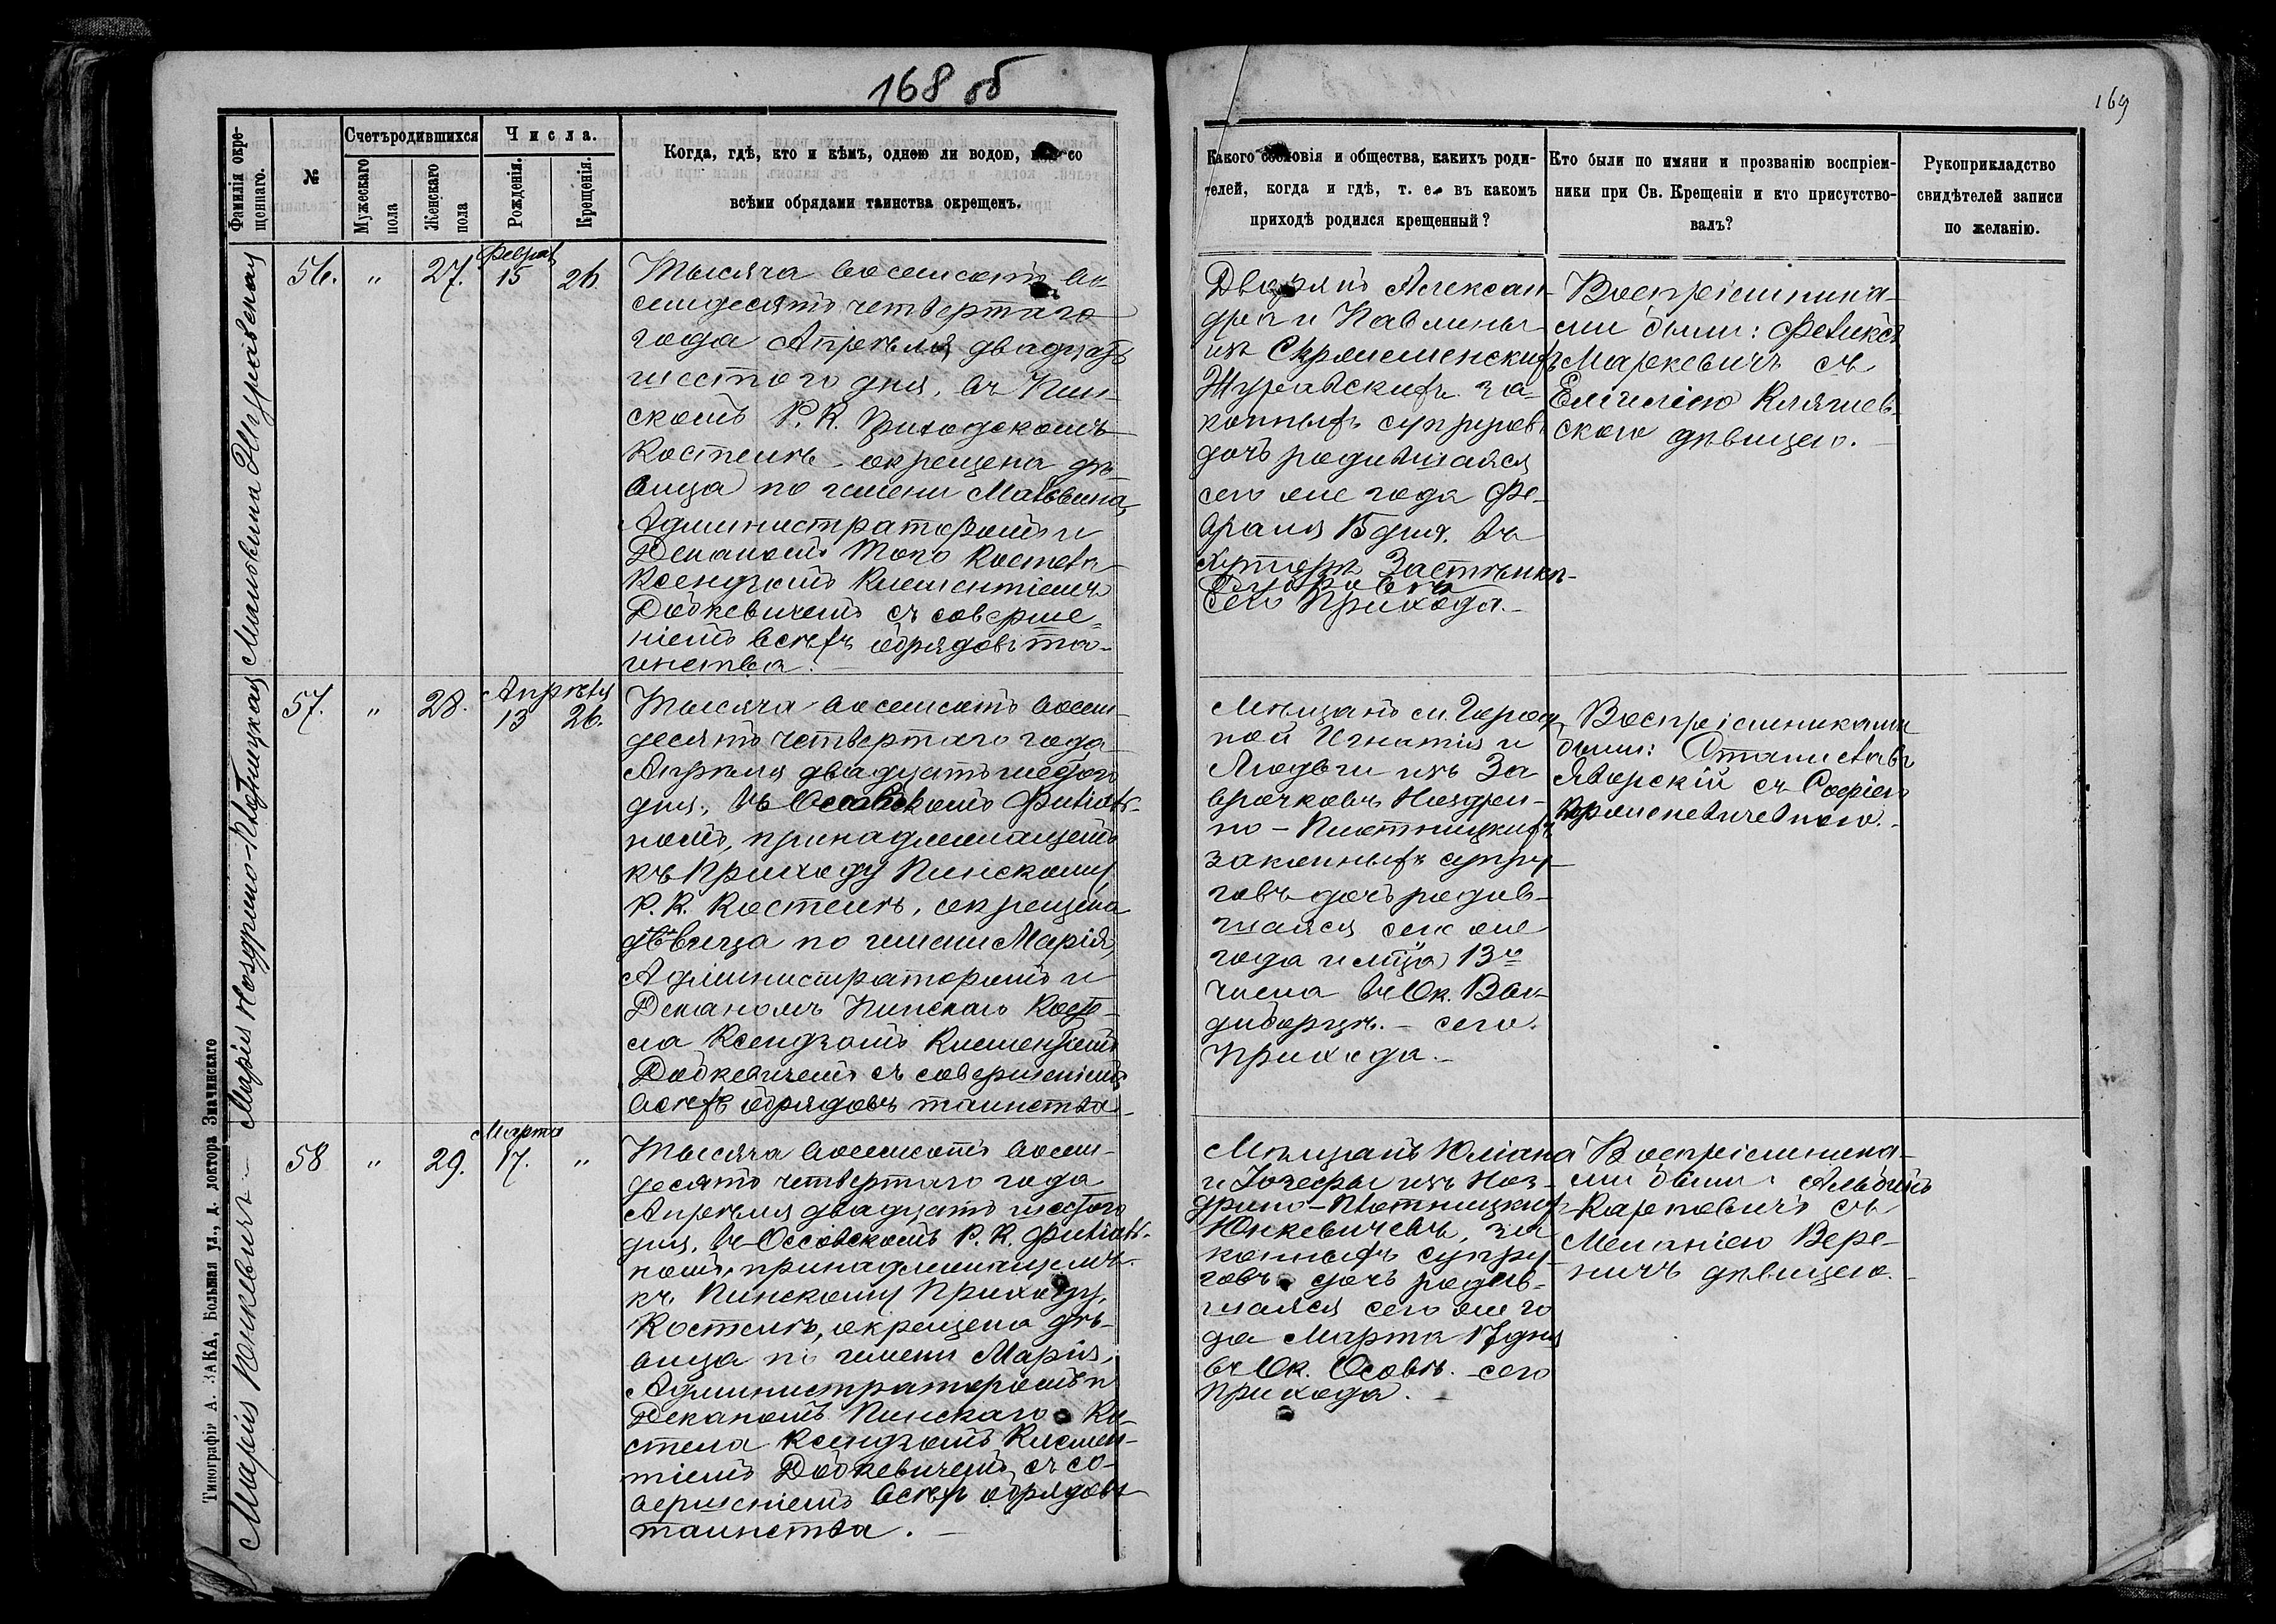 168 об
169
Фамилія окре-
щеннаго.
№
Счетъ родившихся
Мужескаго
пола
Женскаго
пола
Числа.
Рожденія.
Крещенія.
Когда, гдѣ, кто и кѣмъ, одною ли водою, со
всѣми обрядами таинства окрещенъ.
Какого сословія и общества, какихъ роди-
телей, когда и гдѣ, т. е. въ какомъ
приходѣ родился крещенный?
Кто были по имяни и прозванію воспріем-
ники при Св. Крещеніи и кто присутство-
валъ?
Рукоприкладство
свидѣтелей записи
по желанію.
Мальвина Журавская
56.
"
27.
Феврал
15
26
Тысяча восемьсотъ во
семдесятъ четвертаго
года Апрѣля двадцать
шестого дня, въ Пин-
скомъ Р. К. Приходскомъ
Костелѣ окрещена дѣ-
вица по имени Мальвина
Администраторомъ и
Деканомъ того Костела
Ксендзомъ Клементіемъ
Додкевичемъ съ соверше-
ніемъ всѣхъ обрядовъ та-
инства.
Дворянъ Алексан-
дра и Павлины
изъ
Журавскихъ за-
конныхъ супруговъ
дочь родившаяся
сего же года Фе-
враля 15 дня. въ
хуторѣ Застѣнка
Дубровѣ
сего Прихода.
Воспріемника-
ми были: Феликсъ
Маркевичъ съ
Емиліею
дѣвицею.
Марія Ноздрино-Плотницкая
57.
"
28.
Апрѣля
13
26.
Тысяча восемьсотъ восем-
десятъ четвертаго года
Апрѣля двадцать шестого
дня, въ Осовскомъ Филіаль-
номъ, принадлежащемъ
къ Приходу Пинскому,
Р. К. Костелѣ, окрещена
дѣвица по имени Марія,
Администраторомъ и
Деканомъ Пинскаго Косте-
ла Ксендзомъ Клементіемъ
Додкевичемъ съ совершеніемъ
всѣхъ обрядовъ таинства
Мѣщанъ м. Город
ной Игнатія и
Людвги изъ За
врочковъ Ноздри-
но-Плотницкихъ
законныхъ супру-
говъ дочь родив-
шаяся сего же
года и мца 13го
числа въ Ок.
сего
прихода.
Воспріемниками
были: Станиславъ
Яворскій съ Софіею
Марія Юнкевичъ
58
"
29.
Марта
17.
"
Тысяча восемьсотъ восем-
десятъ четвертаго года
Апрѣля двадцать шестого
дня, въ Оссовскомъ Р. К. Филіаль-
номъ, принадлежащемъ
къ Пинскому Приходу,
Костелѣ, окрещена дѣ-
вица по имени Марія,
Администраторомъ и
Деканомъ Пинскаго Ко-
стела Ксендзомъ Клемен-
тіемъ Додкевичемъ, съ со-
вершеніемъ всѣхъ обрядовъ
таинства.
Мѣщанъ Юліана
и Іозефы изъ Ноз-
дрино-Плотницкихъ
Юнкевичевъ, за
конныхъ супру-
говъ дочь родив-
шаяся сего же го
да Марта 17 дня
въ Ок. Осовѣ. сего
прихода.
Воспріемника-
ми были: Альбинъ
Карповичъ съ
Меланіею Вере-
ничъ дѣвицею.
Типографія А. ЗАКА, Большая ул., д. доктора Значинскаго